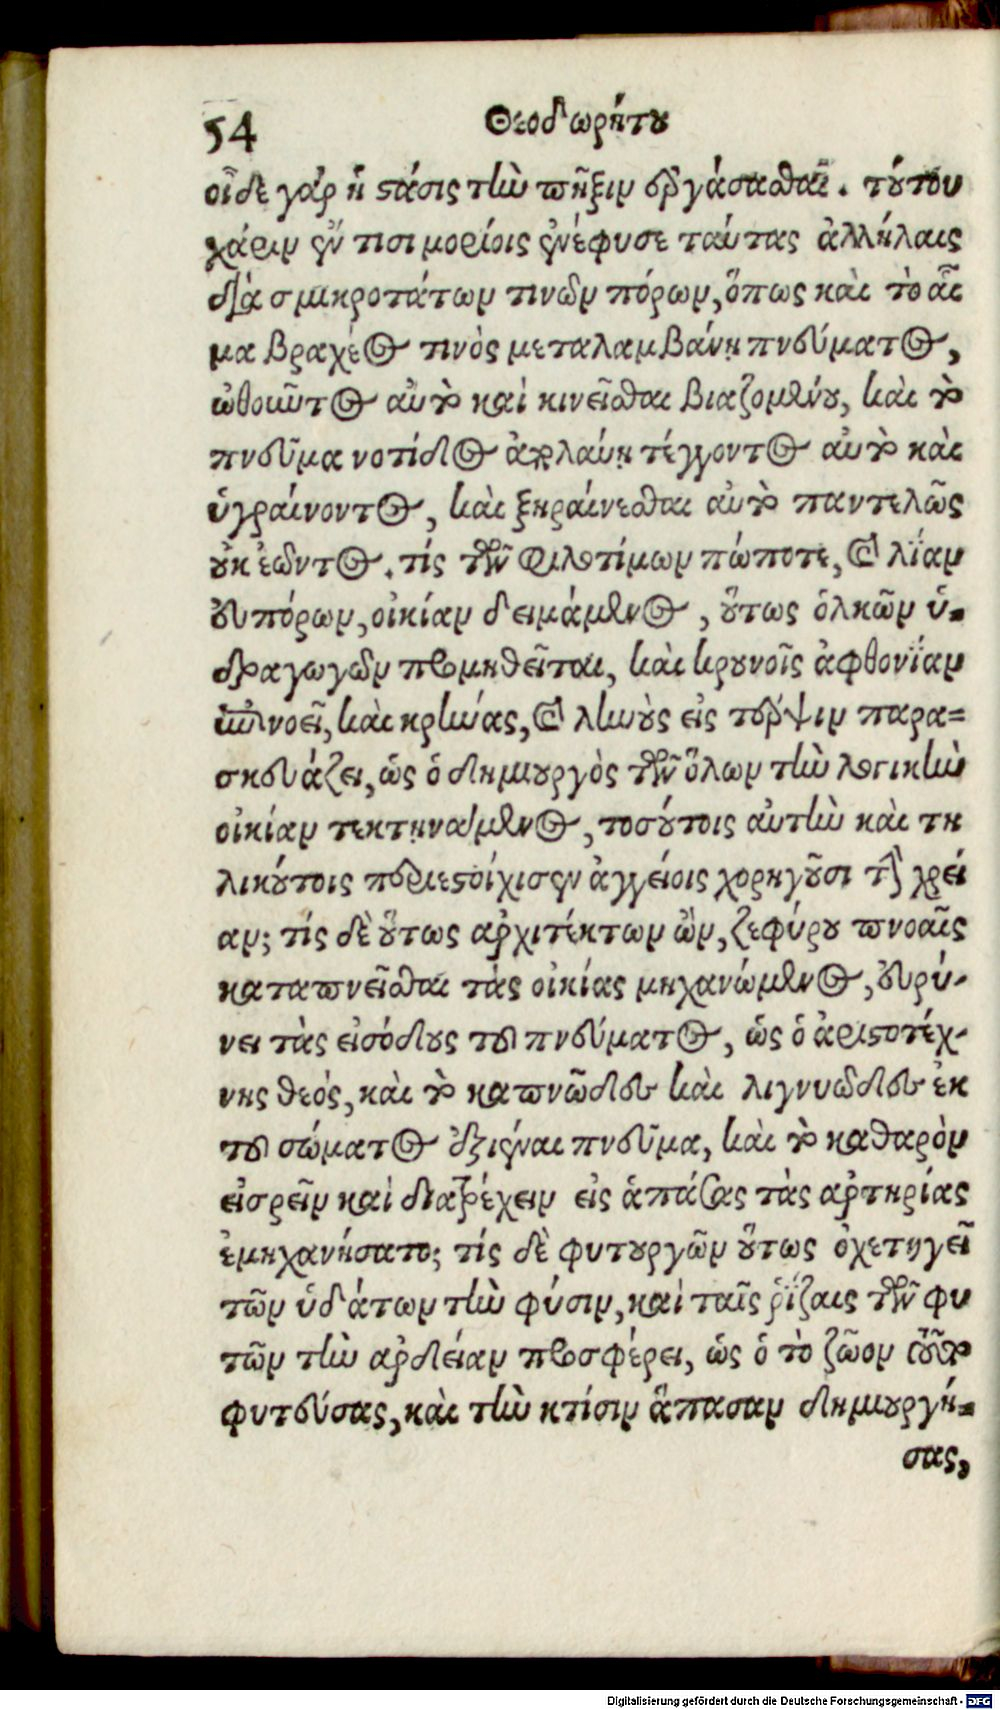 54 Θεοδωρήτου
οἶδε γὰρ ἡ στάσις τὴν πῆξιν ἐργάσασθαι. τούτου
χάριν ἔν τισι μορίοις ἐνέφυσε ταύτας ἀλλήλαις
διὰ σμικροτάτων τινῶν πόρων, ὅπως καὶ τὸ αἷ
μα βραχέος τινὸς μεταλαμβάνῃ πνεύματος,
ὠθοῦντος αὐτὸ καὶ κινεῖσθαι βιαζομένου, καὶ τὸ
πνεῦμα νοτίδος ἀπολαύῃ τέγγοντος αὐτὸ καὶ
ὑγραίνοντος, καὶ ξηραίνεσθαι αὐτὸ παντελῶς
οὐκ ἐῶντος. τίς τῶν φιλοτίμων πώποτε, καὶ λίαν
εὐπόρων, οἰκίαν δειμάμενος, οὕτως ὁλκῶν ὑ-
δραγωγῶν προμηθεῖται, καὶ κρουνοῖς ἀφθονίαν
ἐπινοεῖ, καὶ κρήνας, καὶ ληνοὺς εἰς τέρψιν παρα-
σκευάζει, ὡς ὁ δημιουργὸς τῶν ὅλων τὴν λογικὴν
οἰκίαν τεκτηνάμενος, τοσούτοις αὐτὴν καὶ τη
λικούτοις περιεστοίχισεν ἀγγείοις χορηγοῦσι τὴν χρεί
αν; τίς δὲ οὕτως ἀρχιτέκτων ὢν, ζεφύρου πνοαῖς
καταπνεῖσθαι τὰς οἰκίας μηχανώμενος, εὐρύ-
νει τὰς εἰσόδους τοῦ πνεύματος, ὡς ὁ ἀριστοτέχ-
νης θεός, καὶ τὸ καπνῶδες καὶ λιγνυῶδες ἐκ
τοῦ σώματος ἐξιέναι πνεῦμα, καὶ τὸ καθαρὸν
εἰσρεῖν καὶ διατρέχειν εἰς ἁπάσας τὰς ἀρτηρίας
ἐμηχανήσατο; τίς δὲ φυτουργῶν οὕτως ὀχετηγεῖ
τῶν ὑδάτων τὴν φύσιν, καὶ ταῖς ῥίζαις τῶν φυ
τῶν τὴν ἀρδείαν προσφέρει, ὡς ὁ τὸ ζῶον τοῦτο
φυτεύσας, καὶ τὴν κτίσιν ἅπασαν δημιουργή-
σας,
Digitalisierung gefördert durch die Deutsche Forschungsgemeinschaft - DFG